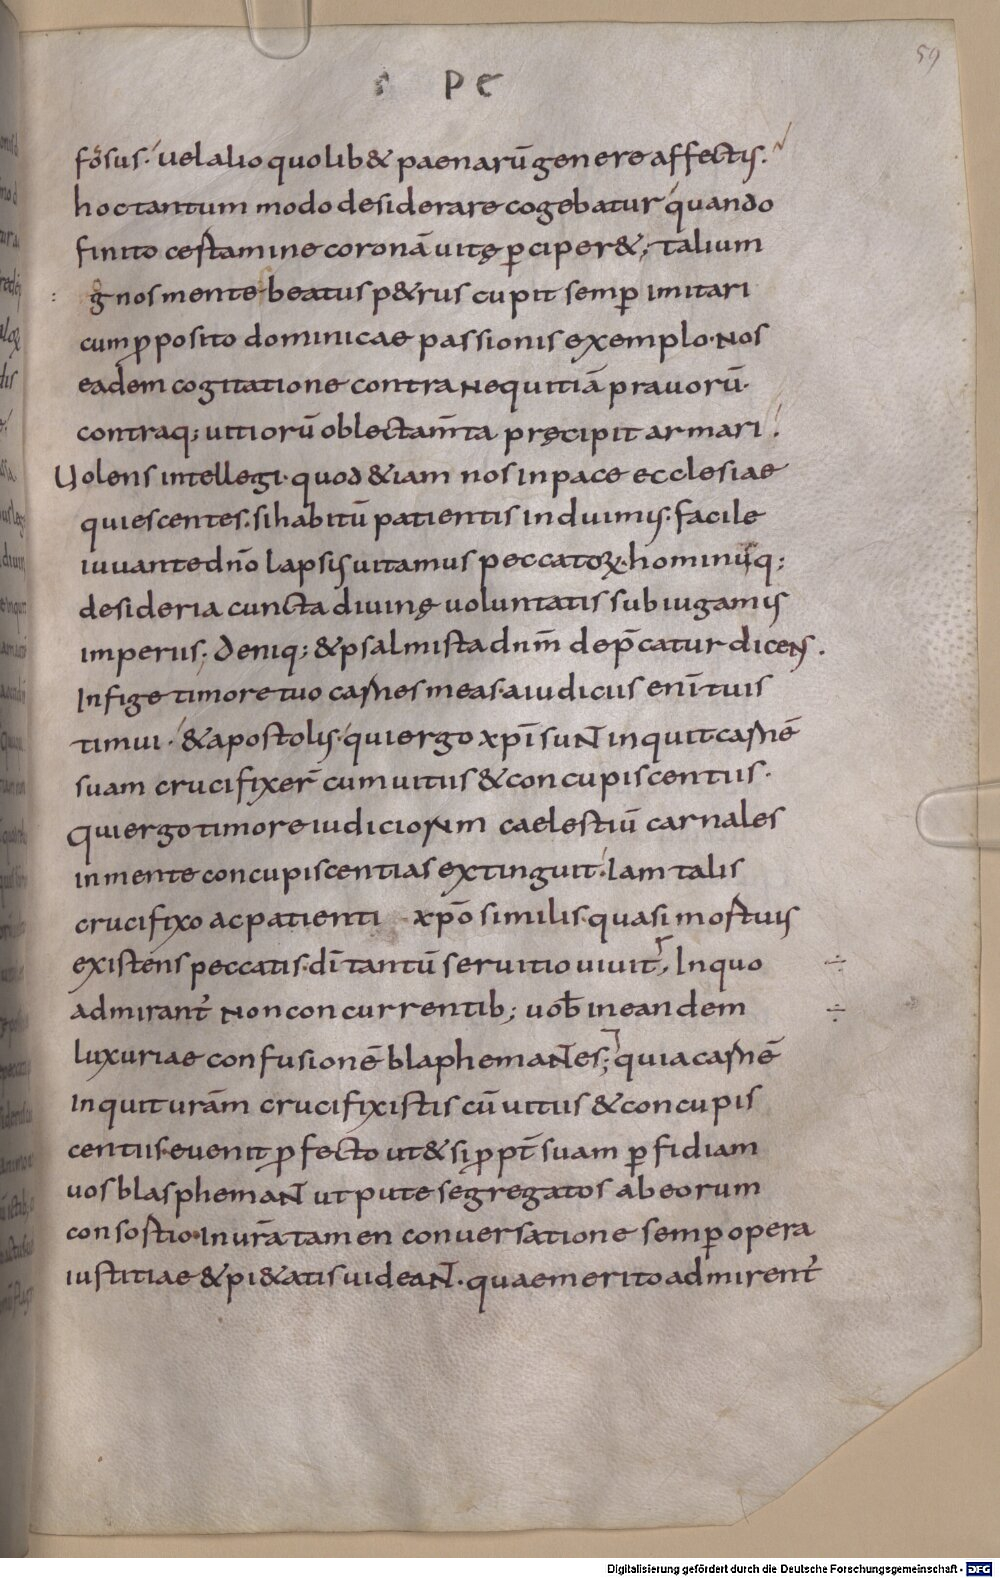 59
PE
fossus. uel alio quolib& paenarū genere affectis.
hoc tantum modo desiderare cogebatur quando
finito certamine coronā uitę ꝑciper&; talium
g nos mente beatus p&rus cupit semꝑ imitari
cum ꝓposito dominicae passionis exemplo. Nos
eadem cogitatione contra nequitiā prauorū.
contraq; uitiorū oblectam̄ta pręcipit armari.
Uolens intellegi. quod &iam nos in pace ecclesiae
quiescentes. si habitū patientis induimus. facile
iuuante dn̄o lapsus uitamus peccatoꝝ. hominūq;
desideria cuncta diuinę uoluntatis subiugamus
imperiis. Deniq; & psalmista dnm̄ dep̄catur dicens.
Infige timore tuo carnes meas. a iudiciis eni̅ tuis
timui. & apostolus. qui ergo xp̄i sunt inquit carnē
suam crucifixer̄ cum uitiis & concupiscentiis.
Qui ergo timore iudiciorum caelestiū carnales
in mente concupiscentias extinguit. Iam talis
crucifixo ac patienti xp̄o similis. quasi mortuus
existens peccatis. dī tantū seruitio uiuit; In quo
admirant̄ non concurrentib; uob̄ in eandem
luxuriae confusionē blasphemantes; quia carnē
inquit urām crucifixistis cū uitiis & concupis
centiis. euenit ꝓfecto ut & si ꝓpt̄ suam ꝑfidiam
uos blasphemant ut pute segregatos ab eorum
consortio. in ur̄a tamen conuersatione semꝑ opera
iustitiae & pi&atis uideant. quae merito admirent̄
Digitalisierung gefördert durch die Deutsche Forschungsgemeinschaft - DFG